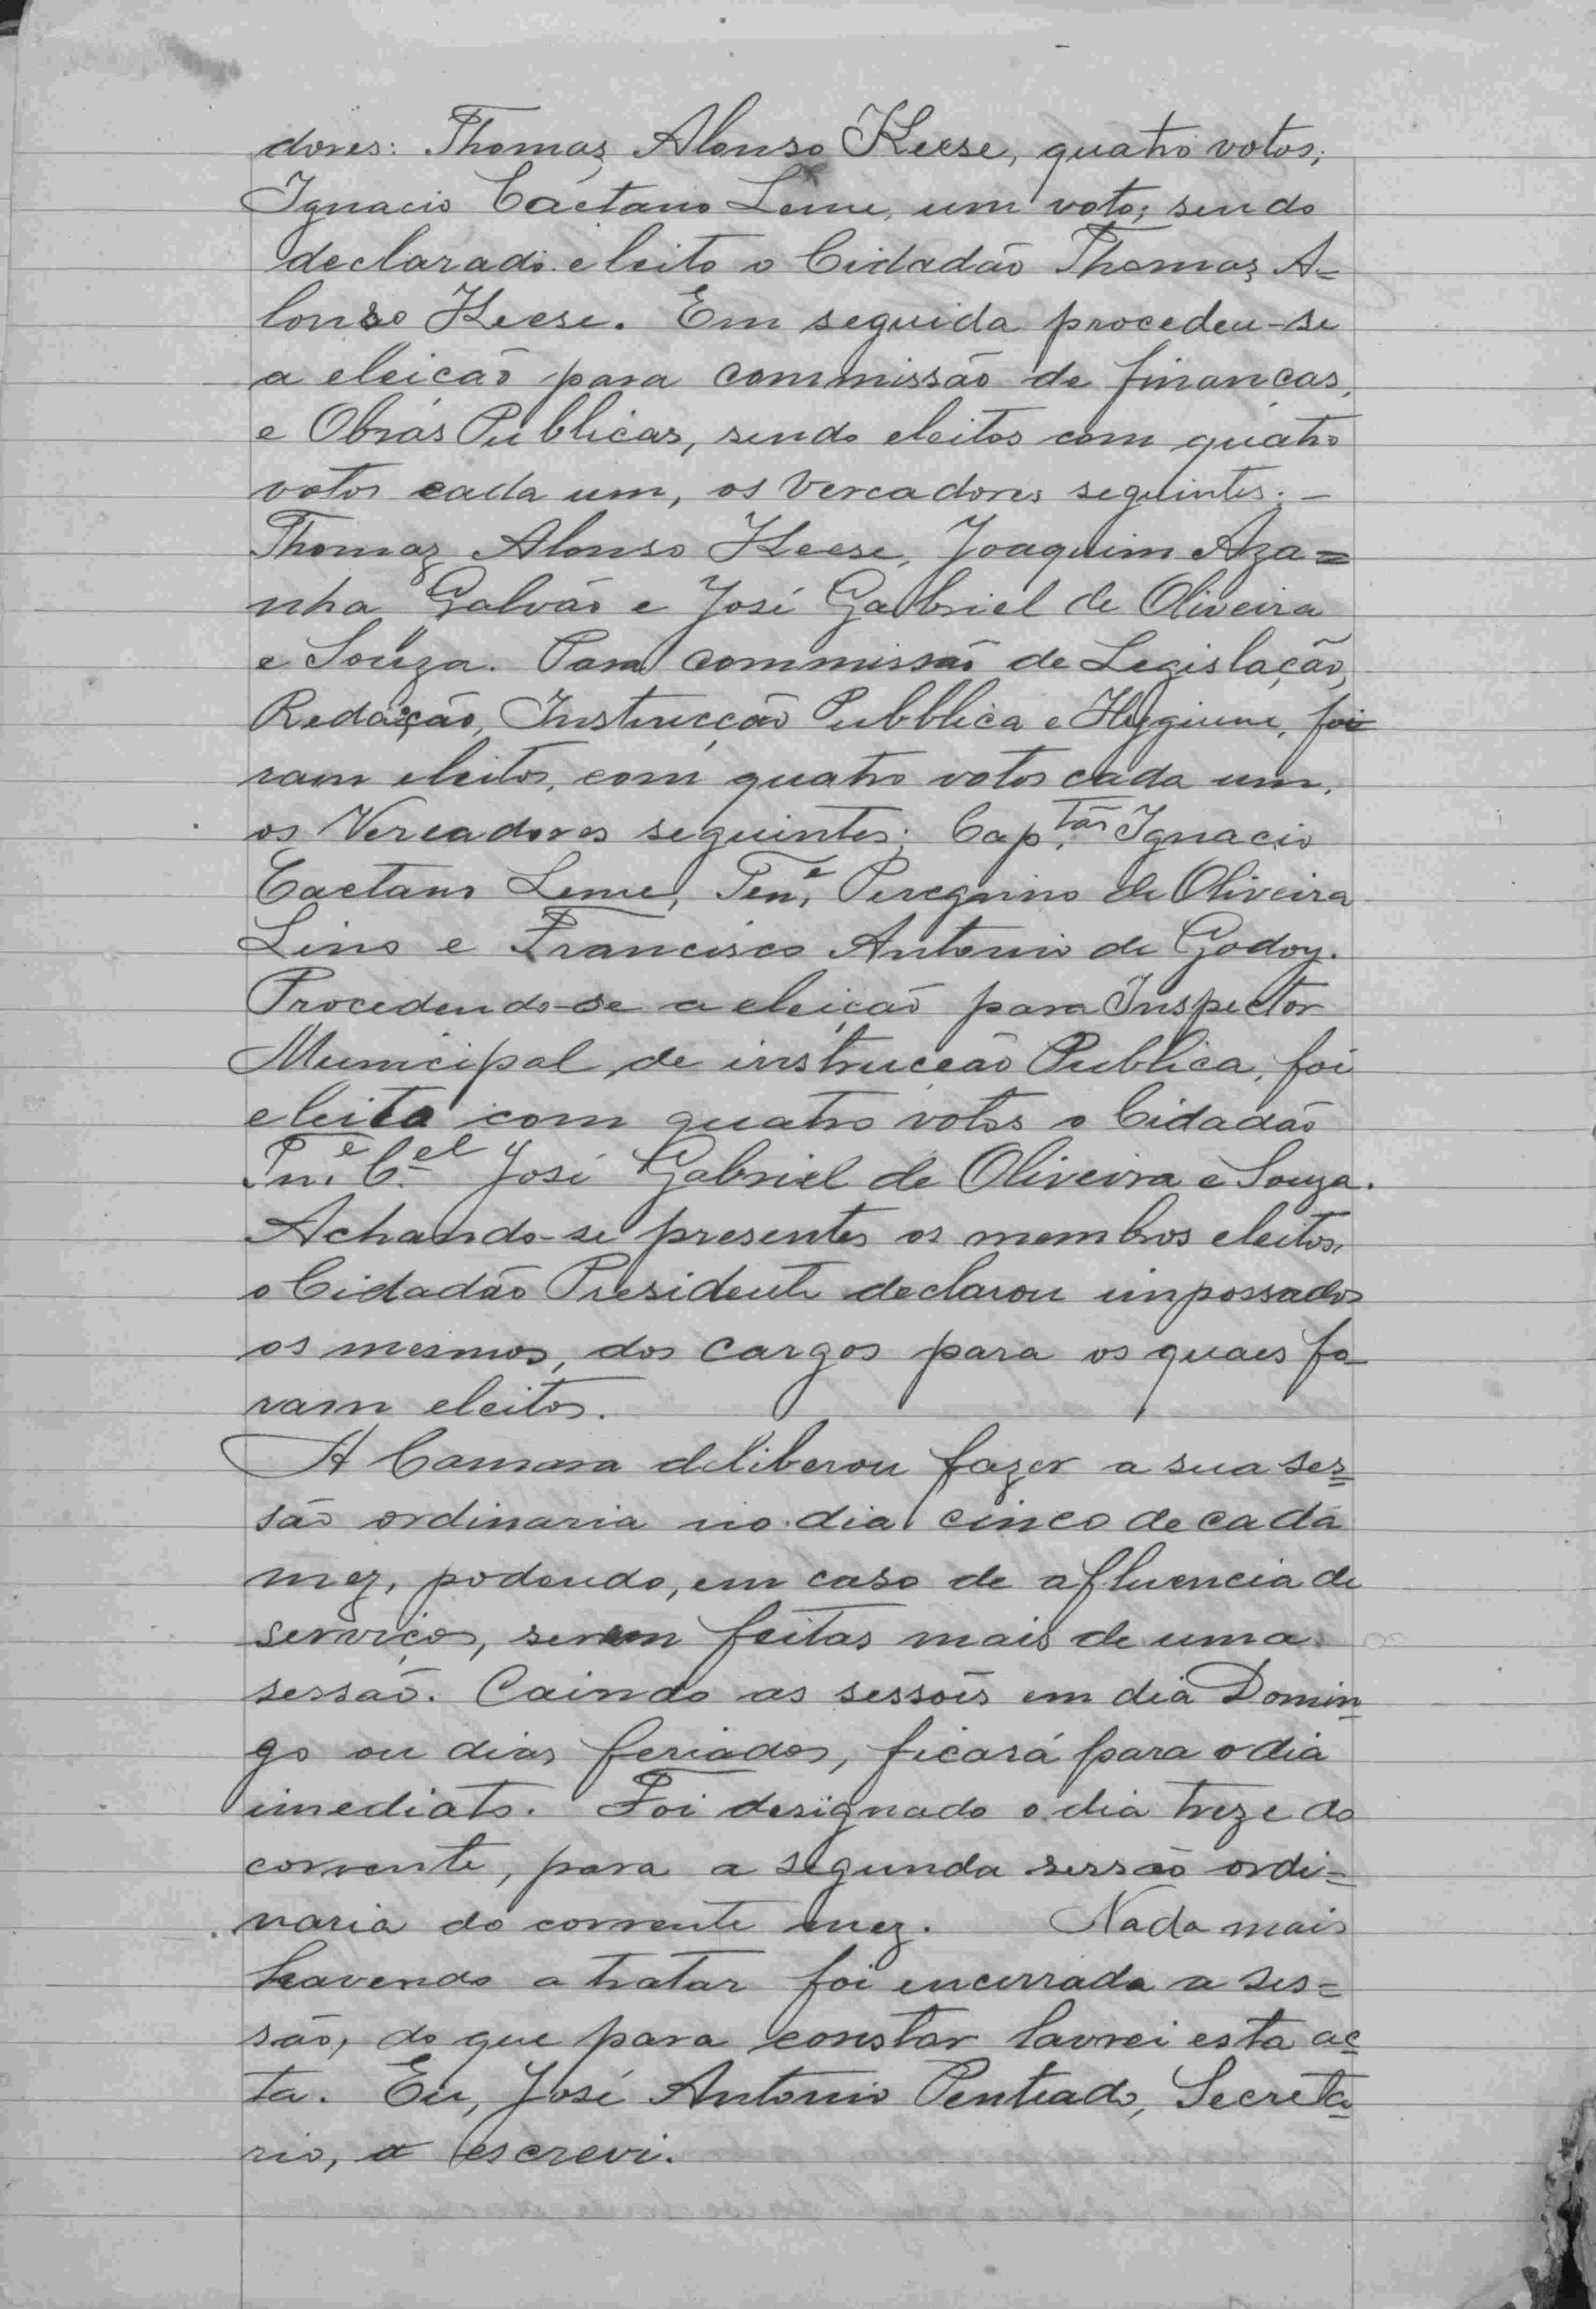 dores: Thomaz Alonso Keese, quatro votos;
Ignacio Caetano Leme, um voto; sendo
declarado eleito o Cidadão Thomaz A=
lonso Keese. Em seguida procedeu-se
a eleição para commissão de finanças,
e Obras Publicas, sendo eleitos com quatro
votos cada um, os Vereadores seguintes: —
Thomaz Alonso Keese, Joaquim Aza=
nha Galvão e José Gabriel de Oliveira
e Souza. Para commissão de Legislação,
Redacção, Instrucção Pubblica e Hygiene, fo
ram eleitos, com quatro votos cada um,
os Vereadores seguintes: Cap.tão Ignacio
Caetano Leme, Ten.e Peregrino de Oliveira
Lino e Francisco Antonio de Godoy.
Procedendo-se a eleição para Inspector
Municipal de instrucção Publica, foi
eleito com quatro votos o Cidadão
Tn.e C.el José Gabriel de Oliveira e Souza.
Achando-se presentes os membros eleitos,
o Cidadão Presidente declarou impossados
os mesmos, dos cargos para os quaes fo
ram eleitos.
A Camara deliberou fazer a sua ses=
são ordinaria no dia cinco de cada
mez, podendo, em caso de affluencia de
serviços, serem feitas mais de uma
sessão. Caindo as sessões em dia Domin
go ou dias feriados, ficará para o dia
imediato. Foi designado o dia treze do
corrente, para a segunda sessão ordi=
naria do corrente mez. Nada mais
havendo a tratar foi encerrada a ses=
são, do que para constar lavrei esta ac
ta. Eu, José Antonio Penteado, Secreta
rio, a escrevi.